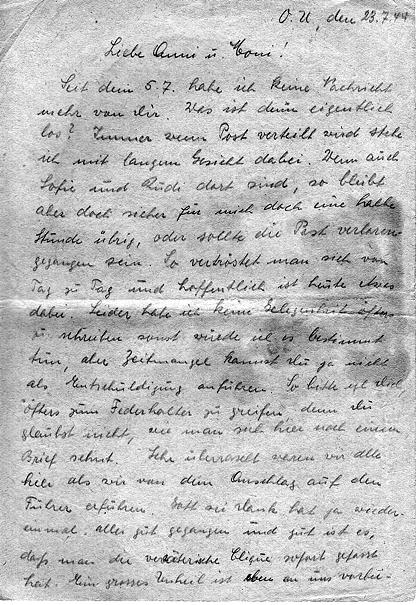 O. U., den 23.7.44
Liebe Anni u. Moni!
Seit dem 5.7. habe ich keine Nachricht
mehr von dir. Was ist denn eigentlich
los? Immer wenn Post verteilt wird stehe
ich mit langem Gesicht dabei. Wenn auch
Sofie und Rudi dort sind, so bleibt
aber doch sicher für mich doch eine halbe
Stunde übrig, oder sollte die Post verloren-
gegangen sein. So vertröstet man sich von
Tag zu Tag und hoffentlich ist heute etwas
dabei. Leider habe ich keine Gelegenheit öfters
zu schreiben sonst würde ich es bestimmt
tun, aber Zeitmangel kannst du ja nicht
als Entschuldigung anführen. So bitte ich dich
öfters zum Federhalter zu greifen, denn du
glaubst nicht, wie man sich hier nach einem
Brief sehnt. Sehr überrascht waren wir alle
hier als wir von dem Anschlag auf den
Führer erfuhren. Gott sei Dank hat ja wieder-
einmal alles gut gegangen und gut ist es,
daß man die verräterische Clique sofort gefasst
hat. Ein grosses Unheil ist eben an uns vorbei-